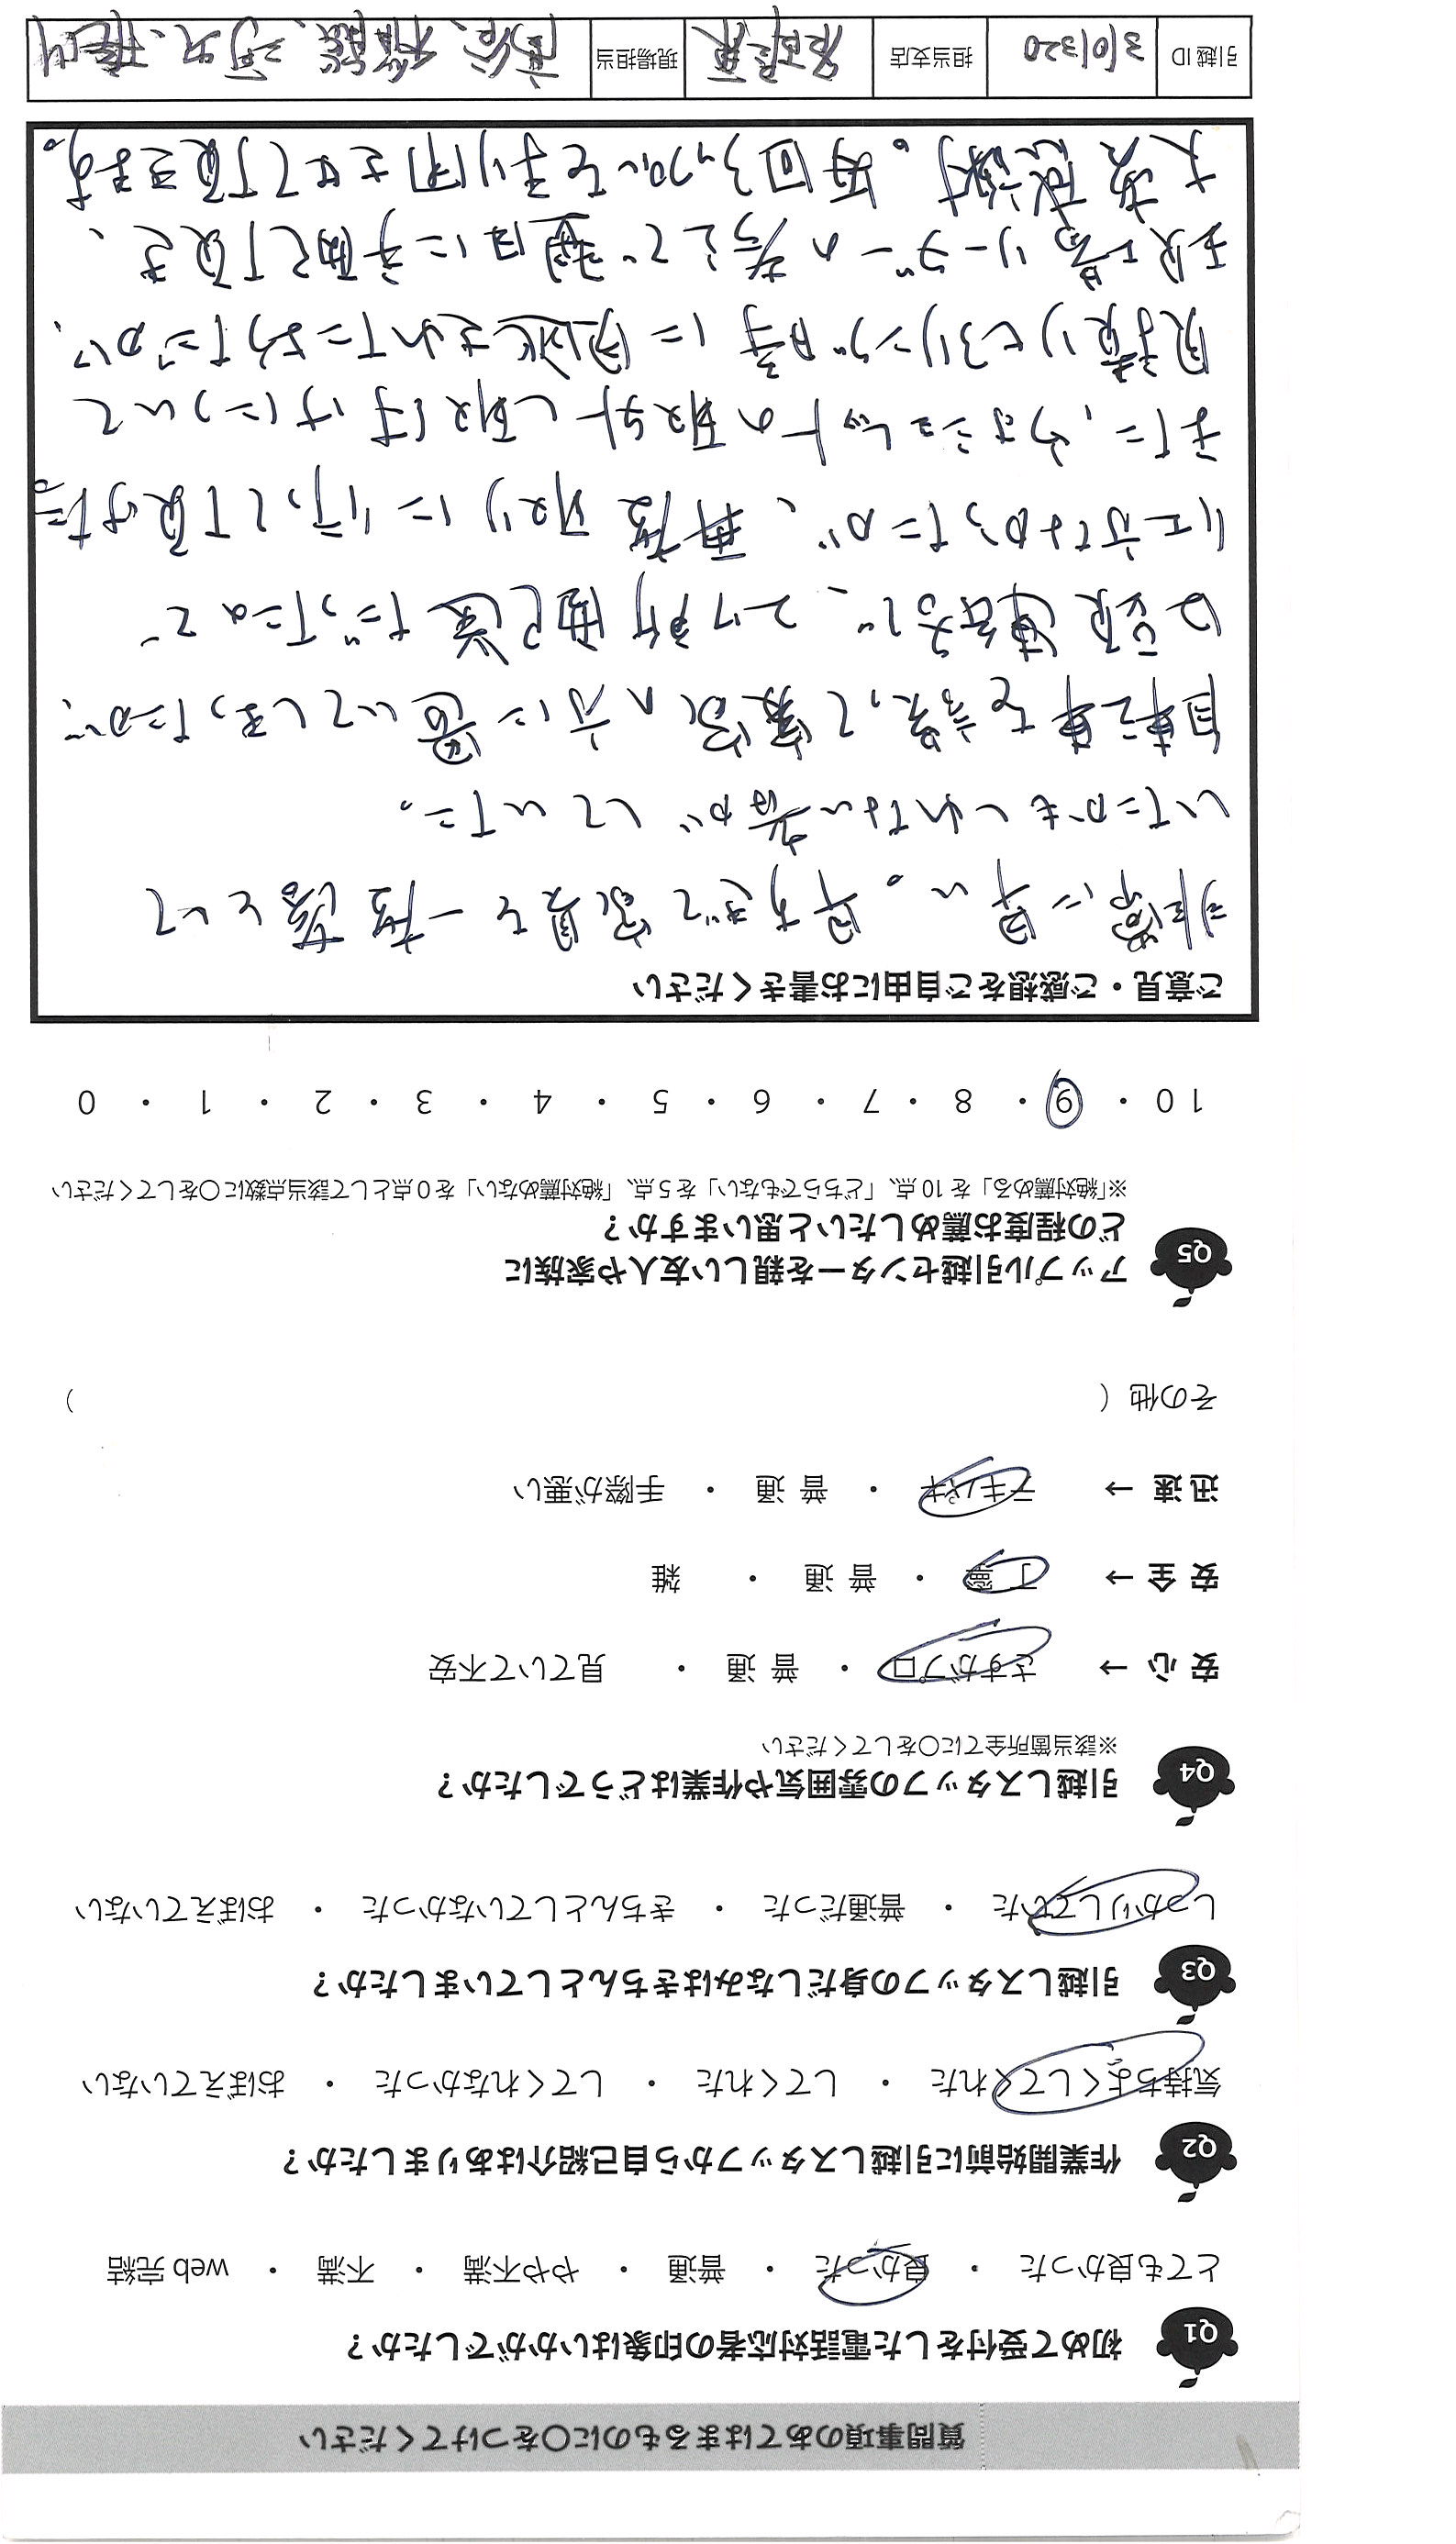 質問事項のあてはまるものに〇をつけてください
Q1 初めて受付をした電話対応者の印象はいかがでしたか？
とても良かった ・ 良かった ・ 普通 ・ やや不満 ・ 不満 ・ web 完結
Q2 作業開始前に引越しスタッフから自己紹介はありましたか？
気持ちよくしてくれた ・ してくれた ・ してくれなかった ・ おぼえていない
Q3 引越しスタッフの身だしなみはきちんとしていましたか？
しっかりしていた ・ 普通だった ・ きちんとしていなかった ・ おぼえていない
Q4 引越しスタッフの雰囲気や作業はどうでしたか？
※該当箇所全てに〇をしてください
安 心 → さすがプロ ・ 普 通 ・ 見ていて不安
安 全 → 丁 寧 ・ 普 通 ・ 雑
迅 速 → テキパキ ・ 普 通 ・ 手際が悪い
その他 （ ）
Q5 アップル引越センターを親しい友人や家族に
どの程度お薦めしたいと思いますか？
※「絶対薦める」を 10 点、「どちらでもない」を 5 点、「絶対薦めない」を 0 点として該当点数に〇をしてください
10 ・ 9 ・ 8 ・ 7 ・ 6 ・ 5 ・ 4 ・ 3 ・ 2 ・ 1 ・ 0
ご意見・ご感想をご自由にお書きください
非常に早い。早すぎて家具を一度落として
いたかもしれない音がしていた。
自転車を誤って実家の方に置いてしまったが、
口頭連絡で、2ヶ所配送だったので
仕方なかったが、再度取りに行って頂けた。
また、ウォシュレットの取外し取付けについて
見積りヒアリング時に
リーダーの考えで 柔軟に 手配して頂き、
大変感謝。毎回アップルを利用させて頂きます。
引越 ID 3101320 担当支店 現場担当